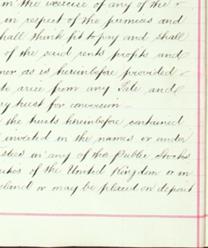 in the exercise of any of the
in respect of the premises and
shall think fit to pay and shall
of the said rents profits and
ner as is hereinbefore provided
to arise from any Sale and
try trust for conversion
the trusts hereinbefore contained
invested in the names or under
stees in any of the Public Stocks
ities of the United Kingdom or in
eland or may be placed on deposit